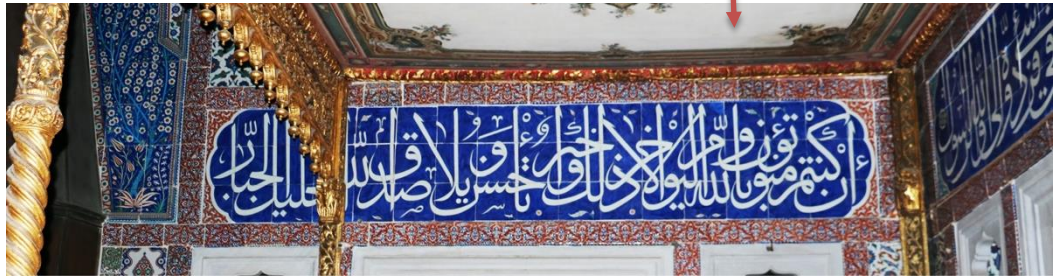 إن كنتم تؤمنون بالله واليوم الآخر ذلك خير وأحسن تأويلا صدق الله الجليل الجبار
الله والرسول